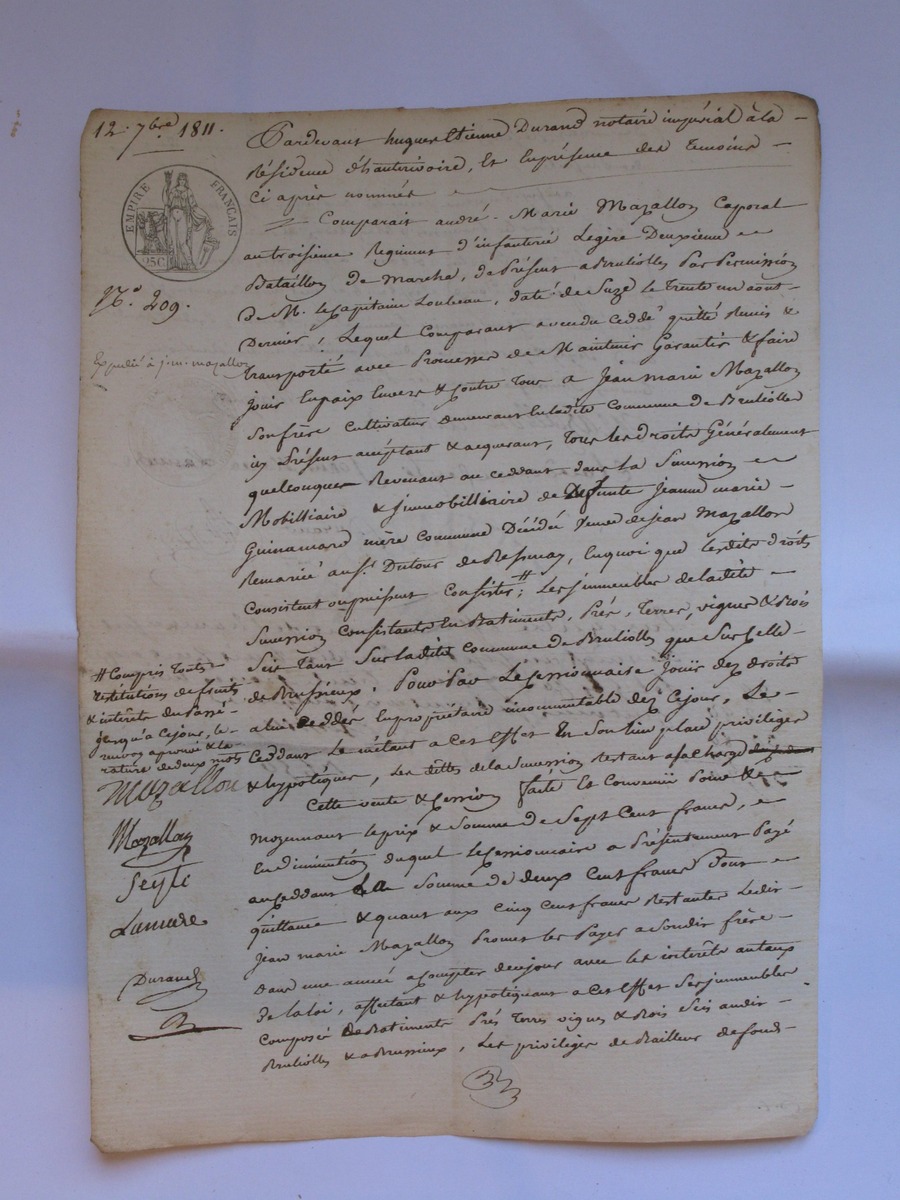 12. 7bre 1811.
EMPIRE FRANÇAIS
25C
N.o 209.
Expedié à j. m. mazallon
Pardevant hugues Etienne Durand notaire impérial à la
Résidence d'hauterivoire, Et En présence des Temoins
Ci après nommés
Comparait andré-Marie Mazallon Caporal
au troisieme Regiment d'infanterie Legère Deuxieme
Bataillon de Marche, de Présent a Brullioles Par Permission
De M. le Capitaine Loubeau, daté de Suze le Trente un aout
Dernier, Lequel Comparant a vendu Ceddé quitté Remis &
transporté avec Promesse de Maintenir Garantir & faire
Jouir En paix Envers & Contre Tous a Jean marie Mazallon
Son frère Cultivateur demeurant En ladite Commune de Brullioles
icy Présent acceptant & acquerant, Tous les droits Généralement
quelconques Revenant au Ceddant dans la Succession
Mobilliaire & immobilliaire de Defunte Jeanne marie
Guinamard mère Commune Décédée Veuve de jean Mazallon
Remarié au Sr. Dutour de Bessenay, En quoi que lesdits droits
Consistent ou puissent Consister #; Les immeubles de ladite
Succession Consistants En Batiments, Prés, Terres, vignes & Bois
Sis Tant Sur ladite Commune de Brullioles que Sur Celle
de Brussieux. Pour Par Le Cessionnaire Jouïr dez droits
a lui Ceddés En propriétaire incommutable dez Cejour, Le
Ceddant Le mettant a Cet Effet En Son lieu place privilèges
& hypotèques, Les dettes de la Succession Restant a sa Charge
Cette vente & Cession faite Et Convenüe Pour &
moyennant le prix & Somme de Sept Cent francs,
En diminution duquel le Cessionnaire a Présentement Payé
au Ceddant la Somme de deux Cent francs Dont
quittance & quant aux Cinq Cent francs Restantes Ledit
Jean marie Mazallon Promet les Payer a Sondit frère
Dans une année a Compter de ce jour avec les interêts au taux
de la loi, affectant & hypotéquant a Cet Effet Ses immeubles
Composé de Batiments Prés Terres vignes & Bois Sis audit
Brullioles & a Brussieux, Les privilèges de Bailleur de fonds
# Compris Toutes
restitutions de fruits
& intérêts du Passé
Jusqu'à Cejour, le
renvoy aprouvé & la
rature de deux mots
Mazallon
Mazallon
Seytte
Durand